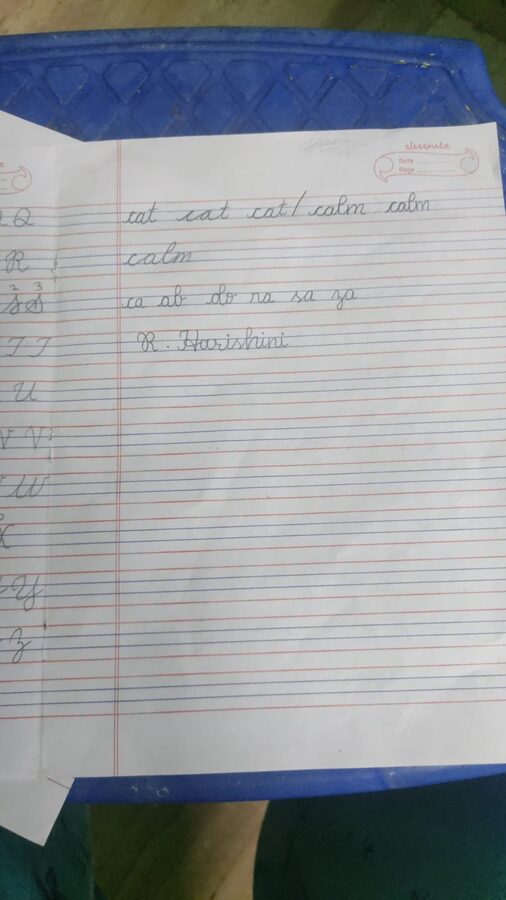 classmate
Date
Page
Q
cat cat cat / calm calm
R
calm
2 3
S S
ca ab do na sa za
T T
R. Harishini
U
V V
W
X
Y
Z